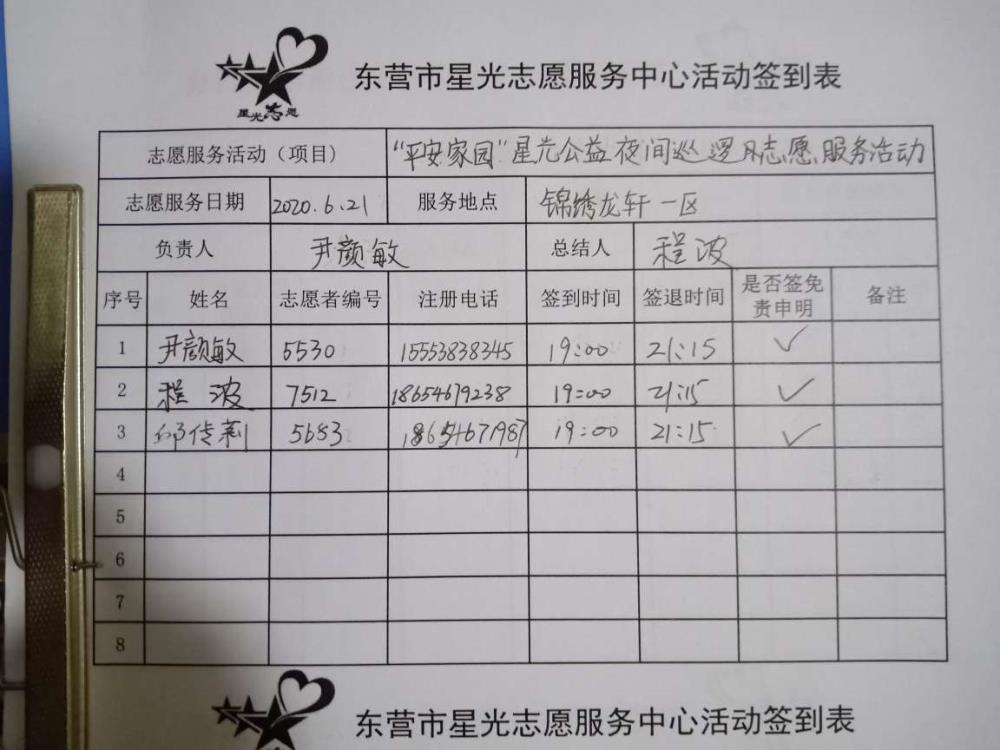 星光志愿
东营市星光志愿服务中心活动签到表
志愿服务活动（项目） “平安家园”星光公益夜间巡逻队志愿服务活动
志愿服务日期 2020.6.21 服务地点 锦绣龙轩一区
负责人 尹颜敏 总结人 程波
序号 姓名 志愿者编号 注册电话 签到时间 签退时间 是否签免责申明 备注
1 尹颜敏 5530 15553838345 19:00 21:15 ✓
2 程波 7512 18654679238 19:00 21:15 ✓
3 邱传莉 5683 18654671987 19:00 21:15 ✓
4
5
6
7
8
东营市星光志愿服务中心活动签到表